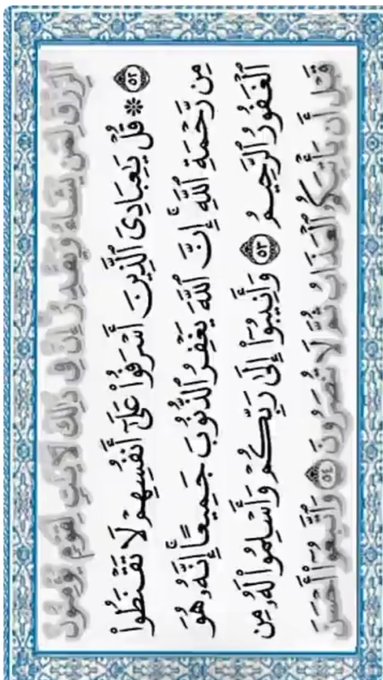 ٱلرِّزْقَ لِمَن يَشَآءُ وَيَقْدِرُ إِنَّ فِى ذَٰلِكَ لَءَايَٰتٍ لِّقَوْمٍ يُؤْمِنُونَ
٥٢ ۞ قُلْ يَٰعِبَادِىَ ٱلَّذِينَ أَسْرَفُوا۟ عَلَىٰٓ أَنفُسِهِمْ لَا تَقْنَطُوا۟
مِن رَّحْمَةِ ٱللَّهِ إِنَّ ٱللَّهَ يَغْفِرُ ٱلذُّنُوبَ جَمِيعًا إِنَّهُۥ هُوَ
ٱلْغَفُورُ ٱلرَّحِيمُ ٥٣ وَأَنِيبُوٓا۟ إِلَىٰ رَبِّكُمْ وَأَسْلِمُوا۟ لَهُۥ مِن
قَبْلِ أَن يَأْتِيَكُمُ ٱلْعَذَابُ ثُمَّ لَا تُنصَرُونَ ٥٤ وَٱتَّبِعُوٓا۟ أَحْسَنَ